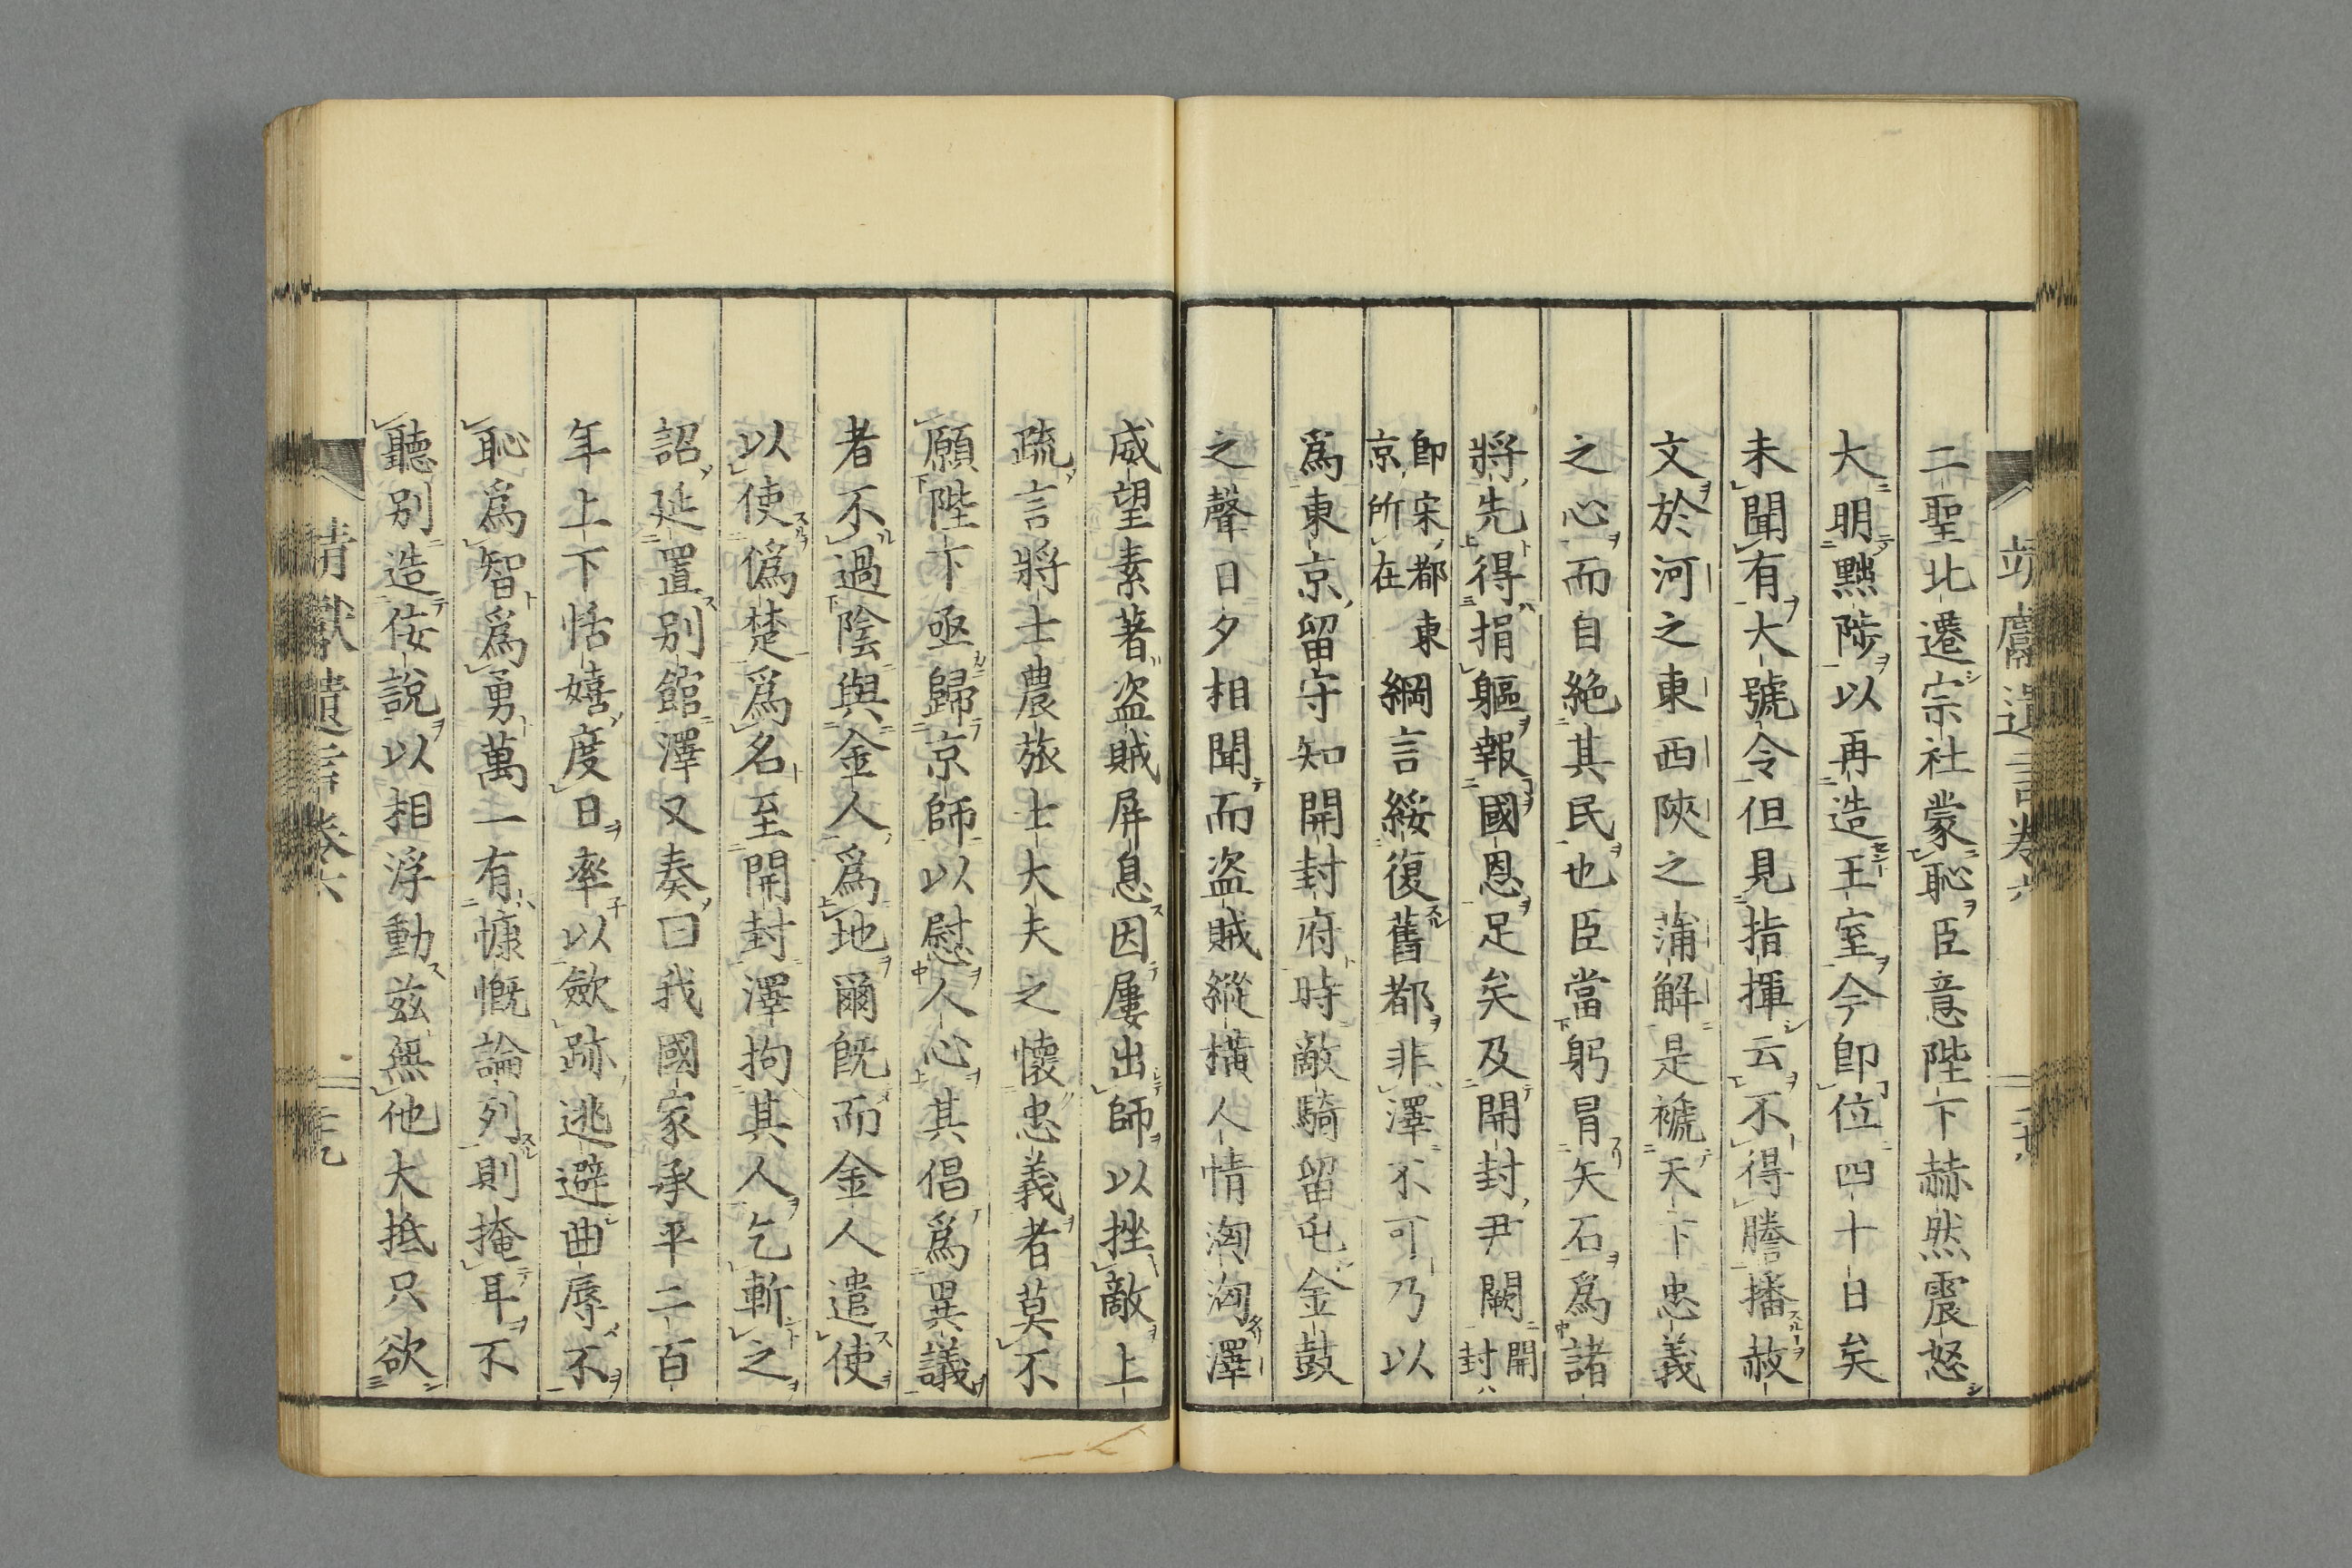 靖獻遺言卷六
二聖北遷宗社蒙恥臣意陛下赫然震怒
大明黜陟以再造王室今卽位四十日矣
未聞有大號令但見指揮云不得謄播赦
文於河之東西陝之蒲解是褫天下忠義
之心而自絶其民也臣當躬冒矢石爲諸
將先得捐軀報國恩足矣及開封尹闕開封八
卽宋都東京所在綱言綏復舊都非澤不可乃以
爲東京留守知開封府時敵騎留屯金鼓
之聲日夕相聞而盜賊縱橫人情洶洶澤
威望素著盜賊屏息因屢出師以挫敵上
疏言將士農旅士大夫之懷忠義者莫不
願陛下亟歸京師以慰人心其倡爲異議
者不過陰與金人爲地爾旣而金人遣使
以使僞楚爲名至開封澤拘其人乞斬之
詔延置别館澤又奏曰我國家承平二百
年上下恬嬉度日率以歛跡逃避曲辱不
恥爲智爲勇萬一有慷慨論列則掩耳不
聽别造侫說以相浮動兹無他大抵只欲
靖獻遺言卷六